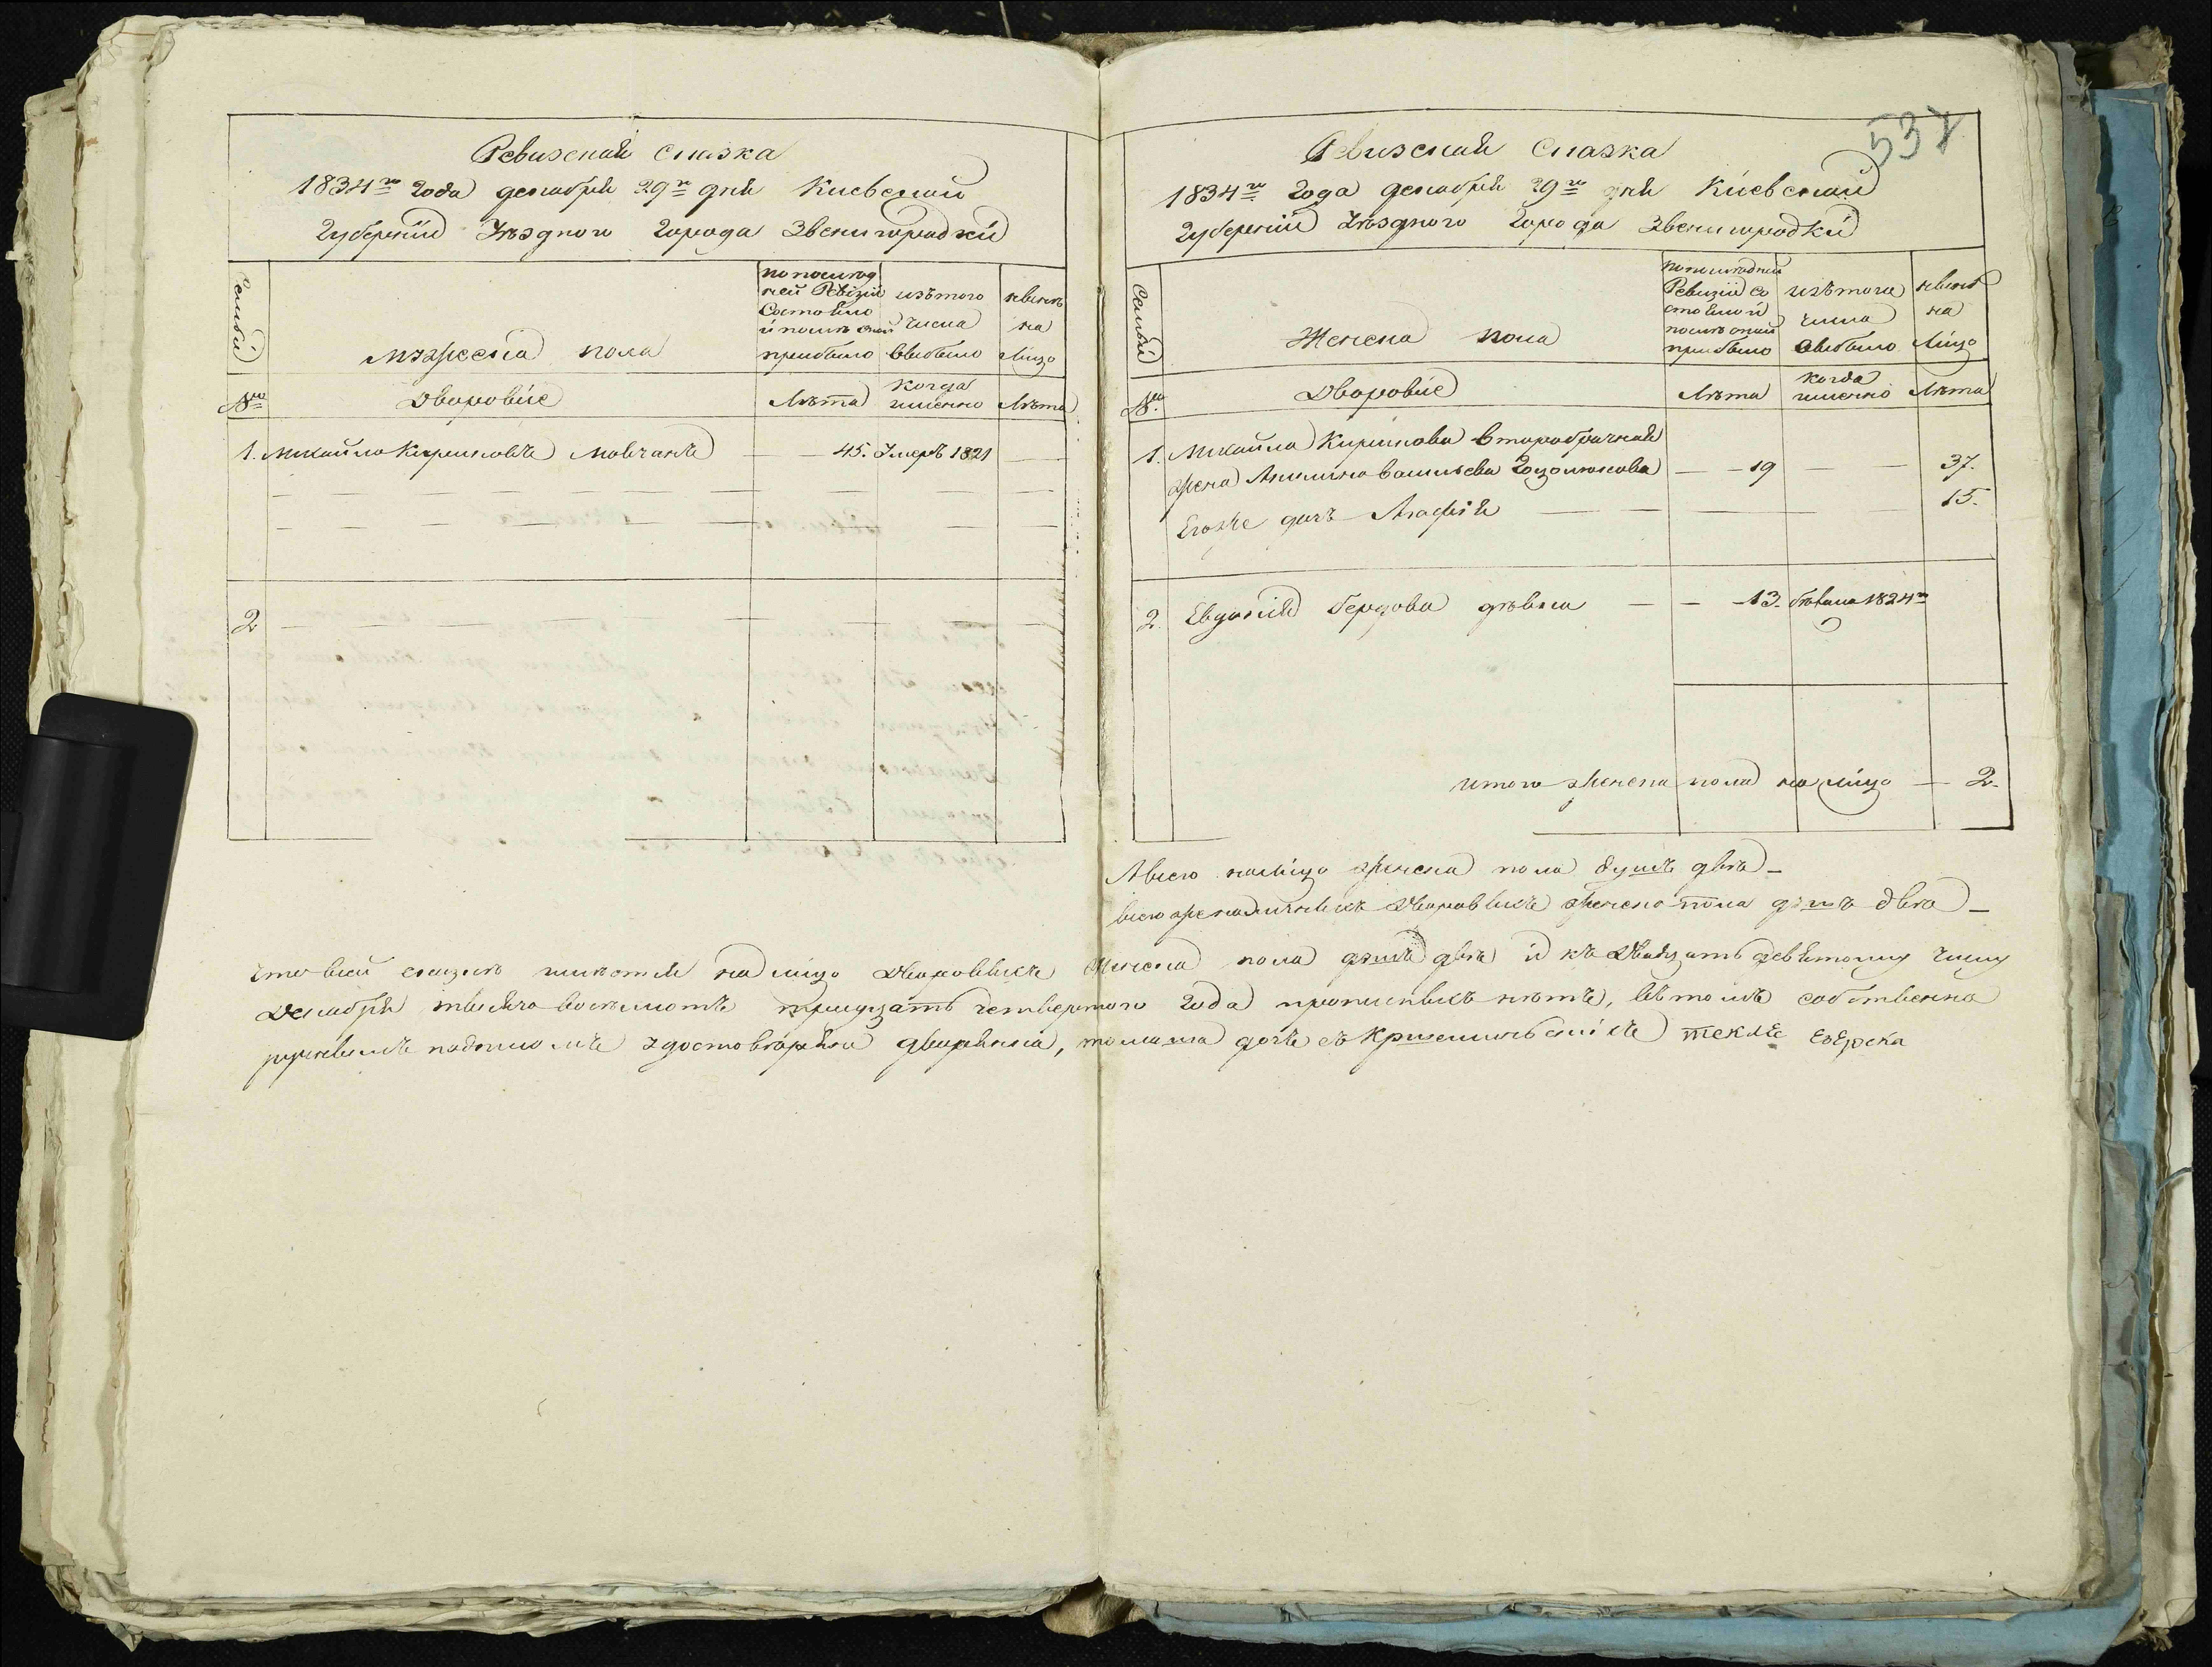 Ревизская сказка
1834го года декабря 29го дня Киевской
Губернии Уезднаго Города Звенигородки
Семьи
Мужеска пола
по послед
ней Ревизіи
Состояло
и после оной
прибыло
изъ того
числа
выбыло
ныне
на
лицо
№
Дворовые
Лета
когда
именно
Лета
1. Михайло Кириловъ Мовчанъ — 45. Умеръ 1821 —
2
532
Ревизская Сказка
1834го Года декабря 29го дня Киевской
Губерніи Уезднаго Города Звенигородки
Семьи
Женска пола
по последней
Ревизіи со
стояло и
после оной
прибыло
изъ того
числа
выбыло
ныне
на
лицо
№
Дворовые
Лета
когда
именно
Лета
1. Михайла Кирилова второбрачная
жена Васильева — 19 — 37.
Егоже дочь Агафія — 15.
2. Евдокія девка — 13. бежала 1824го
итого женска пола на лицо — 2.
А всего налицо женска пола душъ две —
всего же наличныхъ Дворовыхъ женска пола душъ две —
что въ сей сказке на лицо Дворовыхъ Женска пола душъ две и къ Двадцать девятому числу
Декабря тысяча восемсотъ тридцать четвертого года прописныхъ нетъ, въ томъ собственно
подписомъ дворянка, дочь